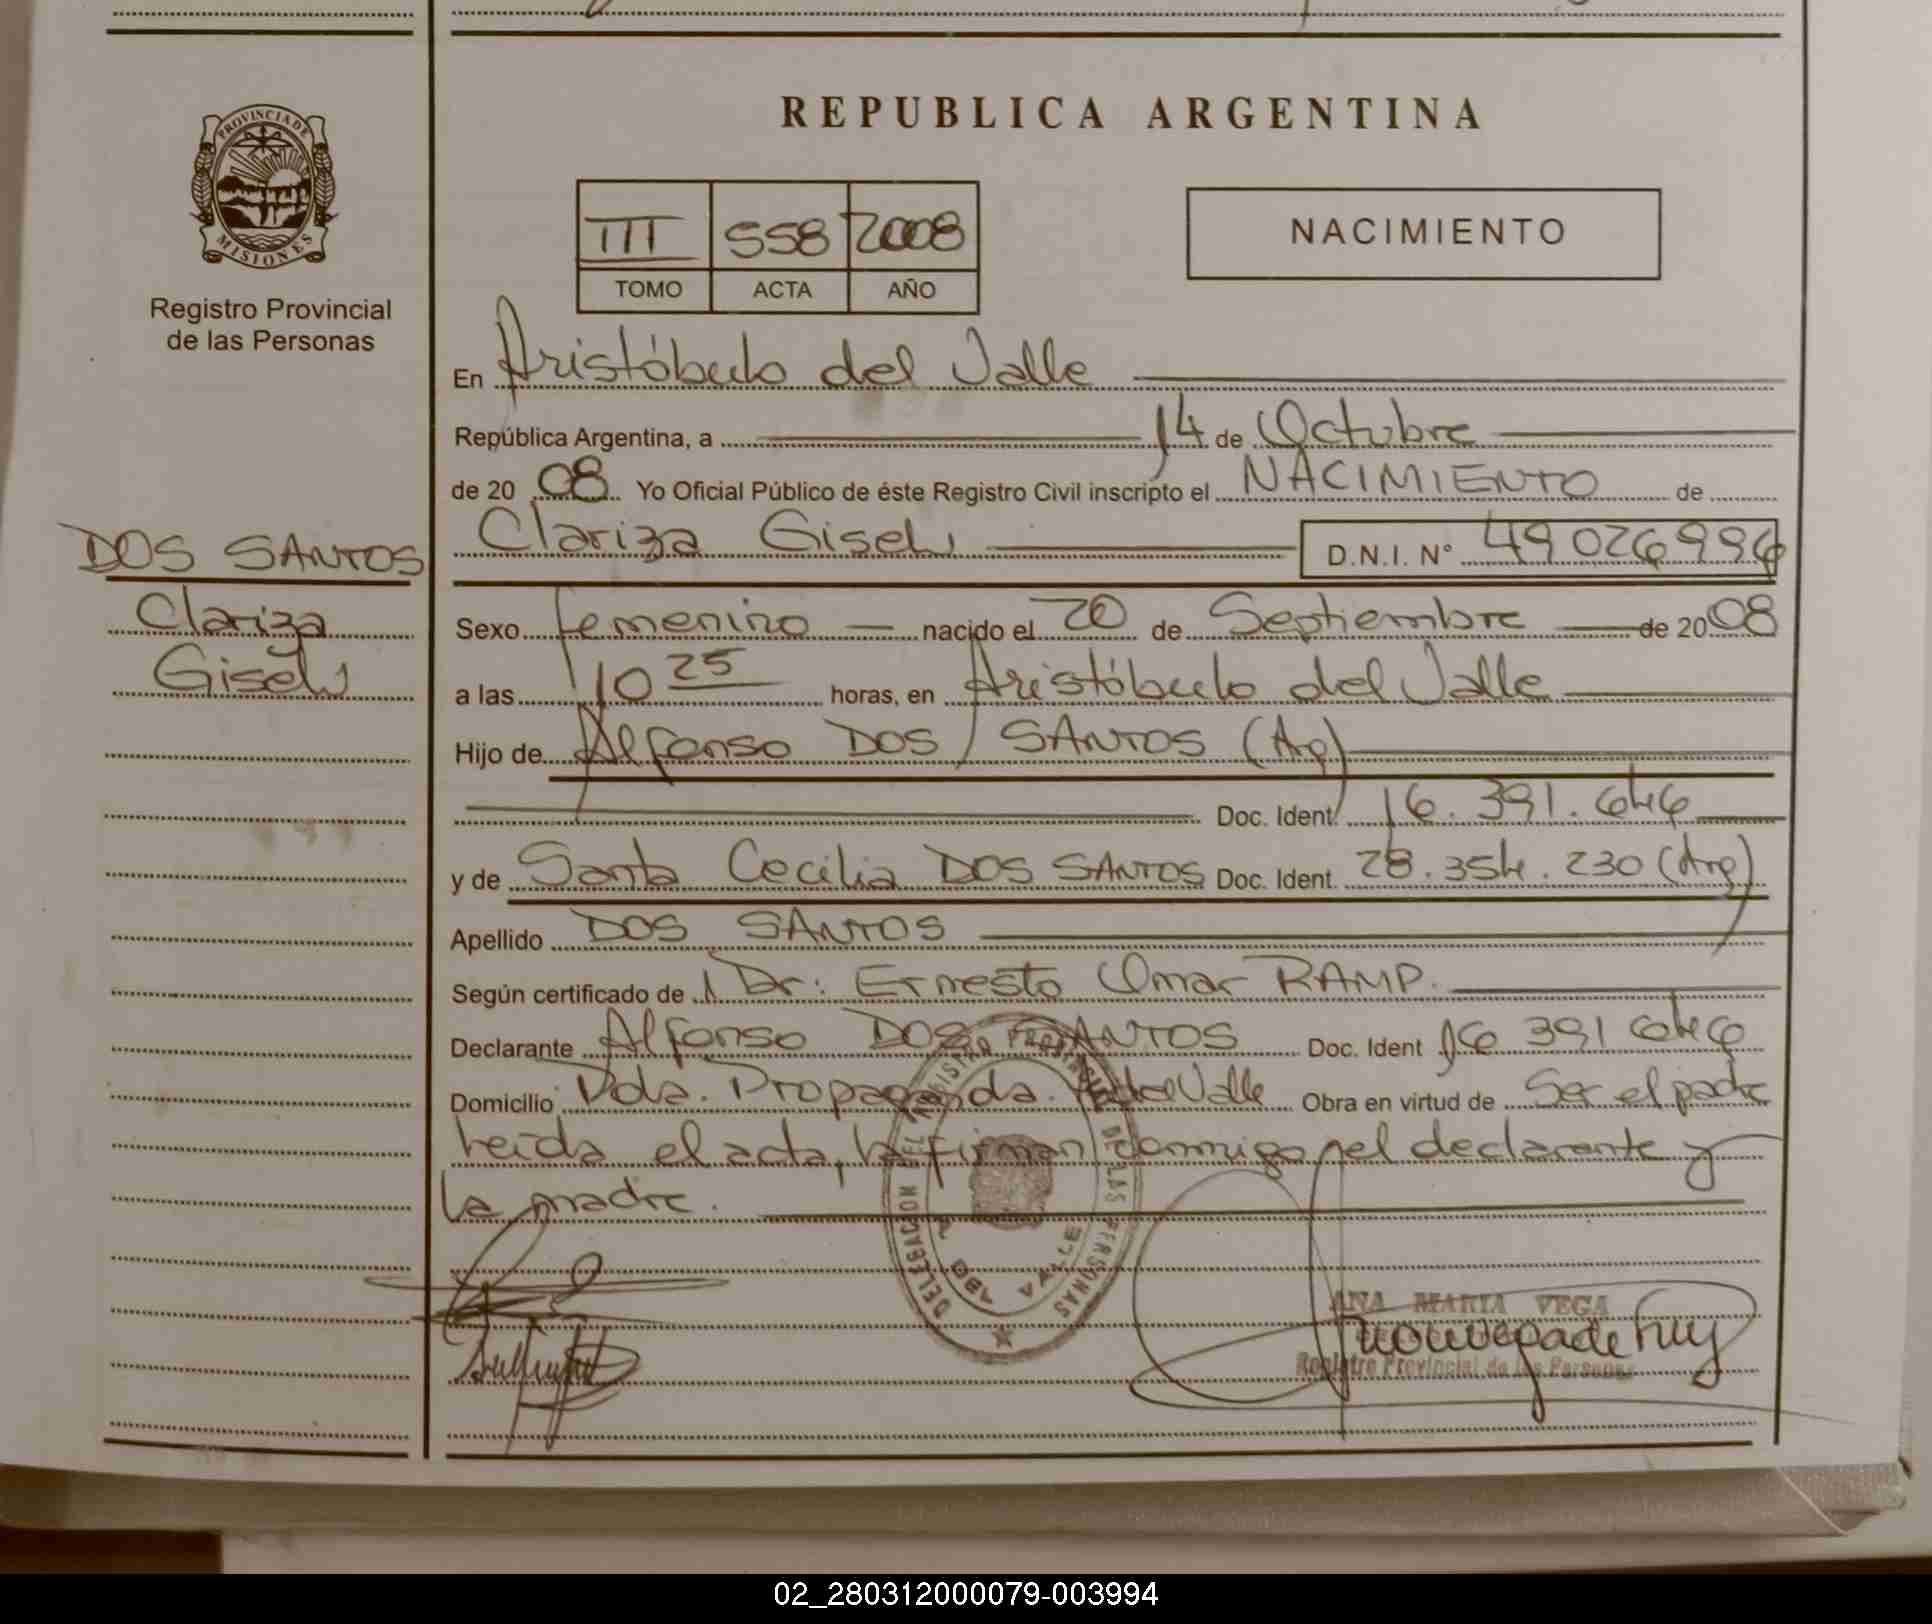 PROVINCIA DE
MISIONES
Registro Provincial
de las Personas
DOS SANTOS
Clariza
Gisela
REPUBLICA ARGENTINA
III 558 2008
TOMO ACTA AÑO
NACIMIENTO
En Aristóbulo del Valle
República Argentina, a 14 de Octubre
de 20 08 Yo Oficial Público de éste Registro Civil inscripto el NACIMIENTO de
Clariza Gisela D.N.I. N° 49026996
Sexo femenino nacido el 20 de Septiembre de 20 08
a las 10 25 horas, en Aristóbulo del Valle
Hijo de Alfonso DOS SANTOS (Arg)
Doc. Ident. 16.391.646
y de Santa Cecilia DOS SANTOS Doc. Ident. 28.354.230 (Arg)
Apellido DOS SANTOS
Según certificado de Dr: Ernesto Omar RAMP.
Declarante Alfonso DOS SANTOS Doc. Ident 16 391 646
Domicilio Pda. Propaganda. A del Valle Obra en virtud de Ser el padre
leída el acta, la firman conmigo, el declarante y
la madre.
DELEGACION DEL REGISTRO PROVINCIAL DE LAS PERSONAS
A DBO VALLE
ANA MARIA VEGA
Registro Provincial de las Personas
02_280312000079-003994